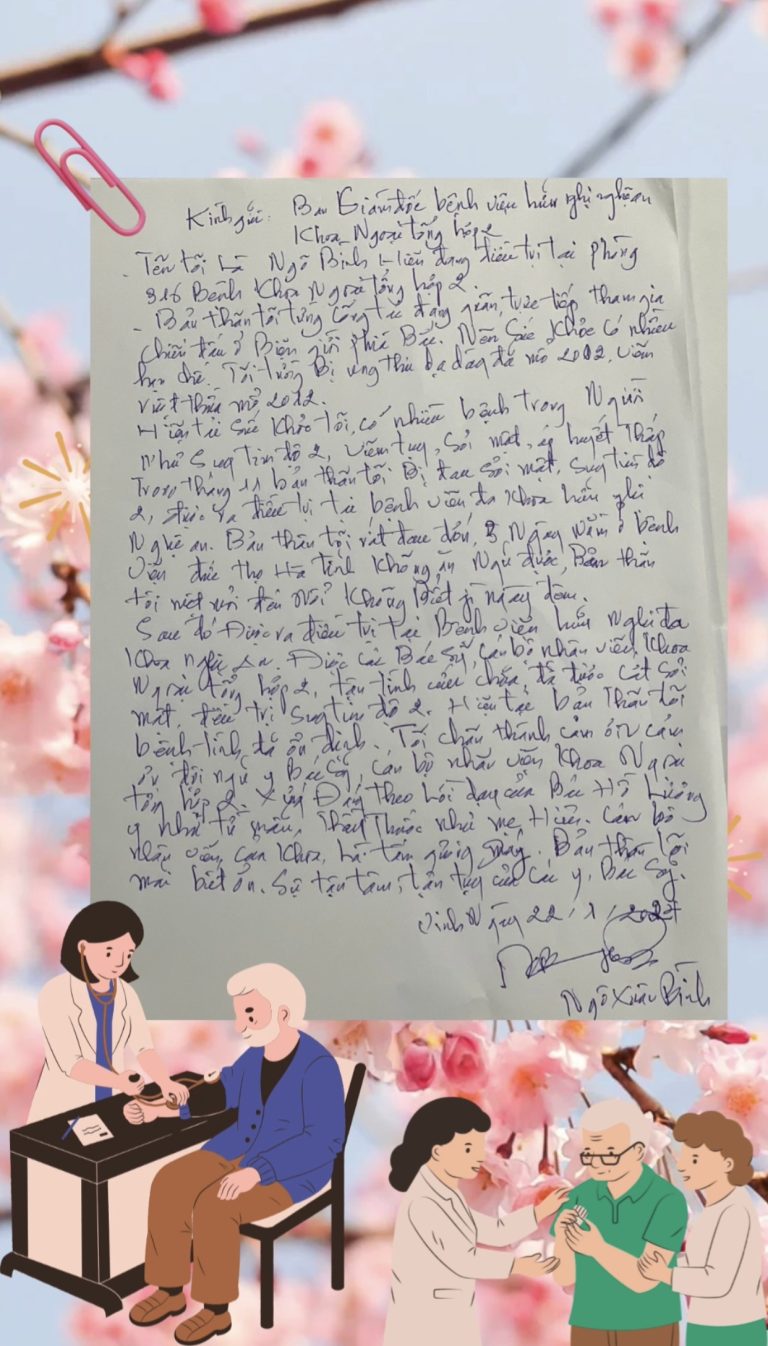 Kính gửi: Ban Giám đốc bệnh viện hữu nghị nghệ an
Khoa Ngoại tổng hợp 2
- Tên tôi là Ngô Bình Hiện đang điều trị tại phòng
316 Bệnh Khoa Ngoại tổng hợp 2.
- Bản thân tôi từng Công tác đang quân, trực tiếp tham gia
chiến đấu ở Biên giới phía Bắc. Nên Sức Khỏe có nhiều
hạn chế. Tôi từng Bị ung thư dạ dày đã mổ 2002, viêm
ruột thừa mổ 2012.
Hiện tại Sức Khỏe tôi, có nhiều bệnh trong Người
Như Suy tim độ 2, viêm tụy, Sỏi mật, huyết thấp
Trong tháng 11 bản thân tôi Bị đau sỏi mật, Suy tim độ
2, được ra điều trị tại bệnh viện đa Khoa hữu nghị
Nghệ an. Bản thân tôi rất đau đớn, 3 Ngày nằm ở bệnh
viện đức thọ Hà Tĩnh Không ăn Ngủ được, Bản thân
tôi đến nỗi Không Biết gì ngày đêm.
Sau đó Được ra điều trị tại Bệnh viện hữu Nghị đa
Khoa nghệ an. Được các Bác Sỹ, cán bộ nhân viên, Khoa
Ngoại tổng hợp 2, tận tình cứu chữa, đã được cắt Sỏi
mật, điều trị Suy tim độ 2. Hiện tại bản Thân tôi
bệnh tình đã ổn định. Tôi chân thành cảm ơn cảm
ơn đội ngũ y Bác Sỹ, cán bộ nhân viên Khoa Ngoại
tổng hợp 2. Xứng Đáng theo lời dạy của Bác Hồ Lương
y như từ mẫu, Thầy Thuốc như mẹ Hiền. Cán bộ
nhân viên, của Khoa, là tấm gương sáng. Bản thân tôi
mãi biết ơn. Sự tận tâm, tận tụy của các y, Bác Sỹ.
Vinh Ngày 22/1/
Ngô Xuân Bình